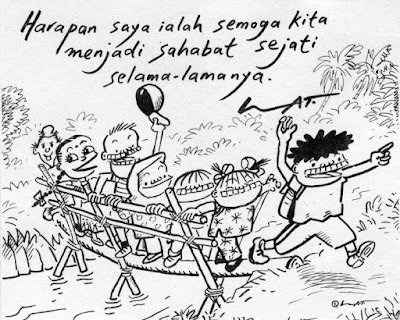 Harapan saya ialah semoga kita
menjadi sahabat sejati
selama-lamanya.
LAT.
©LAT.